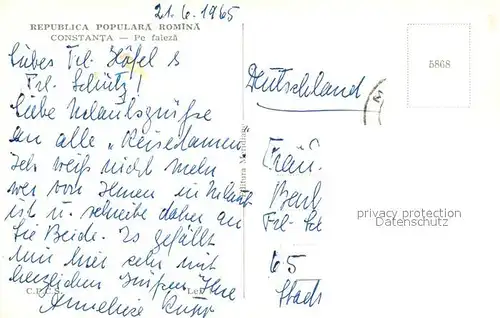 21.6.1965
REPUBLICA POPULARĂ ROMÎNĂ
CONSTANȚA — Pe faleză
Liebes Frl. Höfel &
Frl. Schütz!
Liebe Urlaubsgrüße
an alle „Reisedamen"
Ich weiß nicht mehr
wer von Ihnen in Urlaub
ist u. schreibe daher an
Sie Beide. Es gefällt
mir hier sehr mit
herzlichen Grüßen Ihre
Anneliese
C.P.C.S.
Lei
Editura Meridiane
5868
Deutschland
Fräu
Frl. Sch
65
Stadt
privacy protection
www.privacy-protection.info